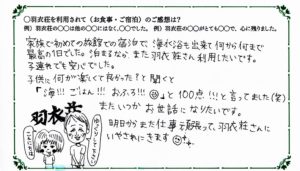 ○羽衣荘を利用された（お食事・ご宿泊）のご感想は？
例）羽衣荘の○○は他の○○にはなく、○○でした。 例）羽衣荘の、○○がとても○○で、心に残りました。
家族で初めての旅館での宿泊で、海が谷も出来て何から何まで
最高の1日でした。泊まるなら また羽衣荘さん利用したいです。
子連れでも安心でした。
子供に 何が楽しくて良かった？と聞くと
「海!!! ごはん!!! おふろ!!!」と100点!!! と言ってました(笑)
また いつか お世話になりたいです。
明日から また仕事を頑張って、羽衣荘さんに
いやされにきます
羽衣荘